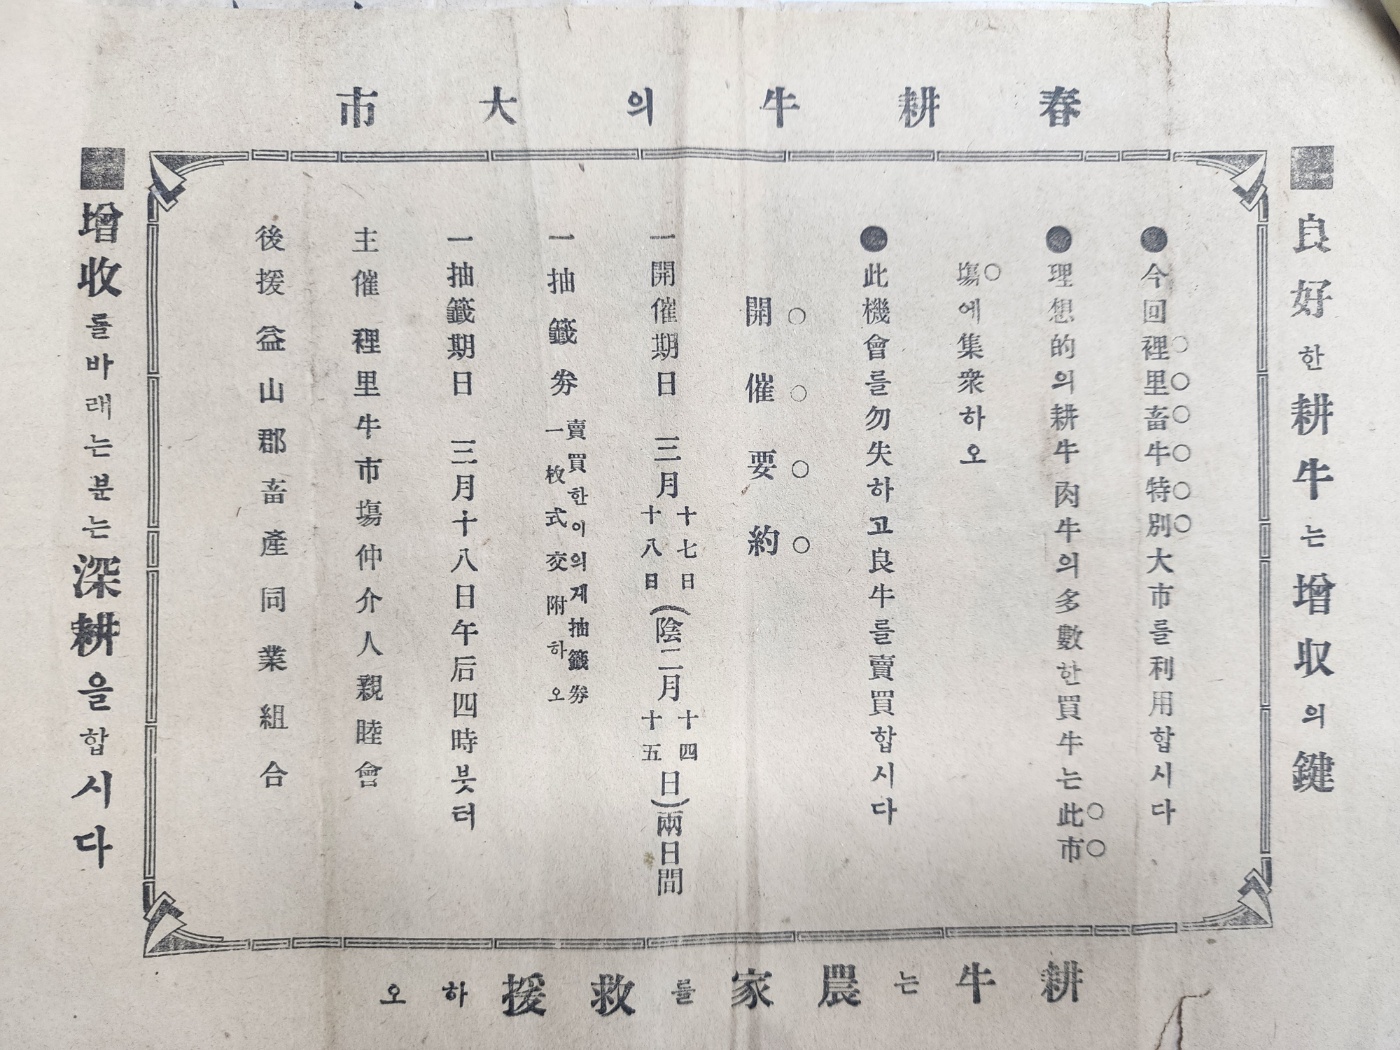 春耕牛의大市
■良好한耕牛는增収의鍵
●今回裡里畜牛特別大市를利用합시다
●理想的의耕牛肉牛의多數한買牛는此市
場에集衆하오
●此機會를勿失하고良牛를賣買합시다
開催要約
一開催期日 三月十七日十八日(陰二月十四十五日)兩日間
一抽籤券 賣買한이의게抽籤券
一枚式交附하오
一抽籤期日 三月十八日午后四時븟터
主催 裡里牛市場仲介人親睦會
後援 益山郡畜產同業組合
■增收를바래는분는深耕을합시다
耕牛는農家를救援하오